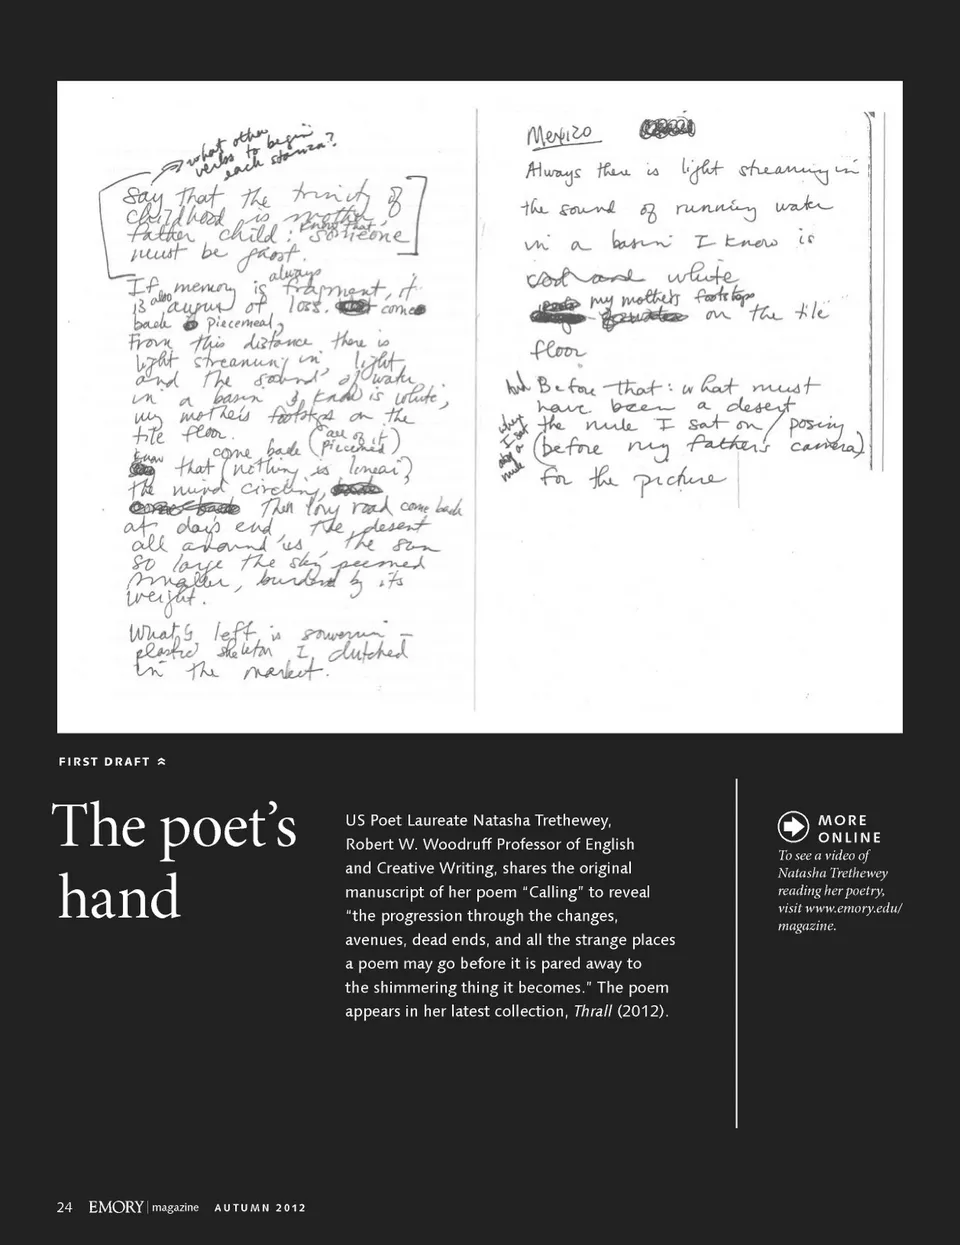 what other
verbs to begin
each stanza?
Say that the trinity of
childhood is mother,
know that
father child: someone
must be ghost.
always
If memory is fragment, it
is also augur of loss. come
back piecemeal,
From this distance there is
light streaming in, light
and the sound of water
in a basin I know is white,
my mother's footsteps on the
tile floor.
come back (all of it)
(Piecemeal)
know
that (nothing is linear)
the mind circling, back
come back Then long road come back
at day's end, the desert
all around us, the sun
so large the sky seemed
smaller, burdened by its
weight.
What's left is souvenir –
plastic skeleton I clutched
in the market.
Mexico
Always there is light streaming in
the sound of running water
in a basin I know is
white
my mother's footsteps
on the tile
floor
Before that: what must
have been a desert
the mule I sat on / posing
(before my father's camera)
for the picture
why
I sat
on a
mule
FIRST DRAFT
The poet's
hand
US Poet Laureate Natasha Trethewey,
Robert W. Woodruff Professor of English
and Creative Writing, shares the original
manuscript of her poem “Calling” to reveal
“the progression through the changes,
avenues, dead ends, and all the strange places
a poem may go before it is pared away to
the shimmering thing it becomes.” The poem
appears in her latest collection, Thrall (2012).
MORE
ONLINE
To see a video of
Natasha Trethewey
reading her poetry,
visit www.emory.edu/
magazine.
24 EMORY | magazine AUTUMN 2012